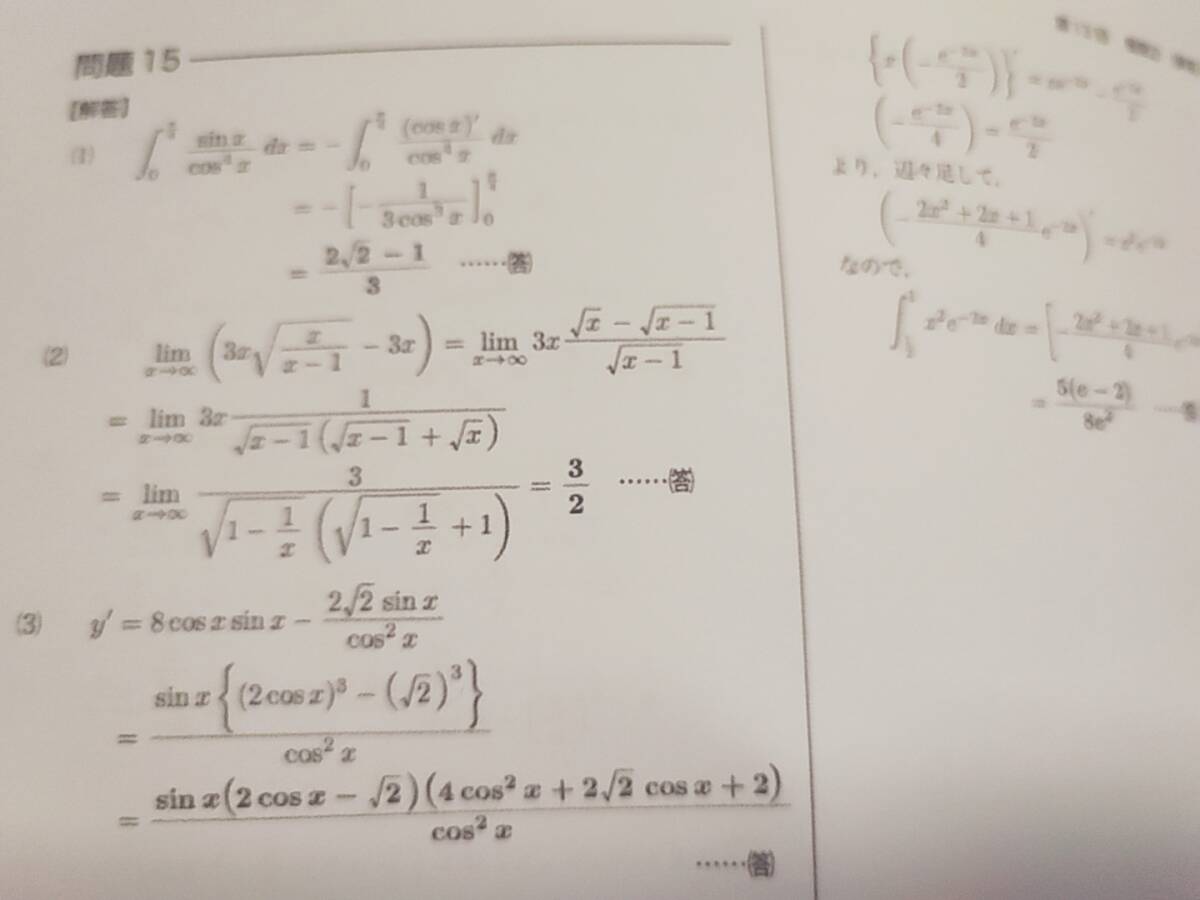 問題 15
[解答]
(1) ∫₀^{π/4} sin x / cos⁴ x dx = −∫₀^{π/4} (cos x)′ / cos⁴ x dx
= −[−1 / (3 cos³ x)]₀^{π/4}
= (2√2 − 1) / 3 ……(答)
(2) lim_{x→∞} (3x√(x/(x−1)) − 3x) = lim_{x→∞} 3x (√x − √(x−1)) / √(x−1)
= lim_{x→∞} 3x 1 / (√(x−1)(√(x−1) + √x))
= lim_{x→∞} 3 / (√(1 − 1/x) (√(1 − 1/x) + 1)) = 3/2 ……(答)
(3) y′ = 8 cos x sin x − 2√2 sin x / cos² x
= sin x{(2 cos x)³ − (√2)³} / cos² x
= sin x(2 cos x − √2)(4 cos² x + 2√2 cos x + 2) / cos² x
……(答)
より，辺々足して，
(−(2x² + 2x + 1)/4 e^{−2x})′ = x²e^{−2x}
なので，
x²e^{−2x} dx = [−(2x² + 2x + 1)/4
= 5(e − 2) / 8e² ……答